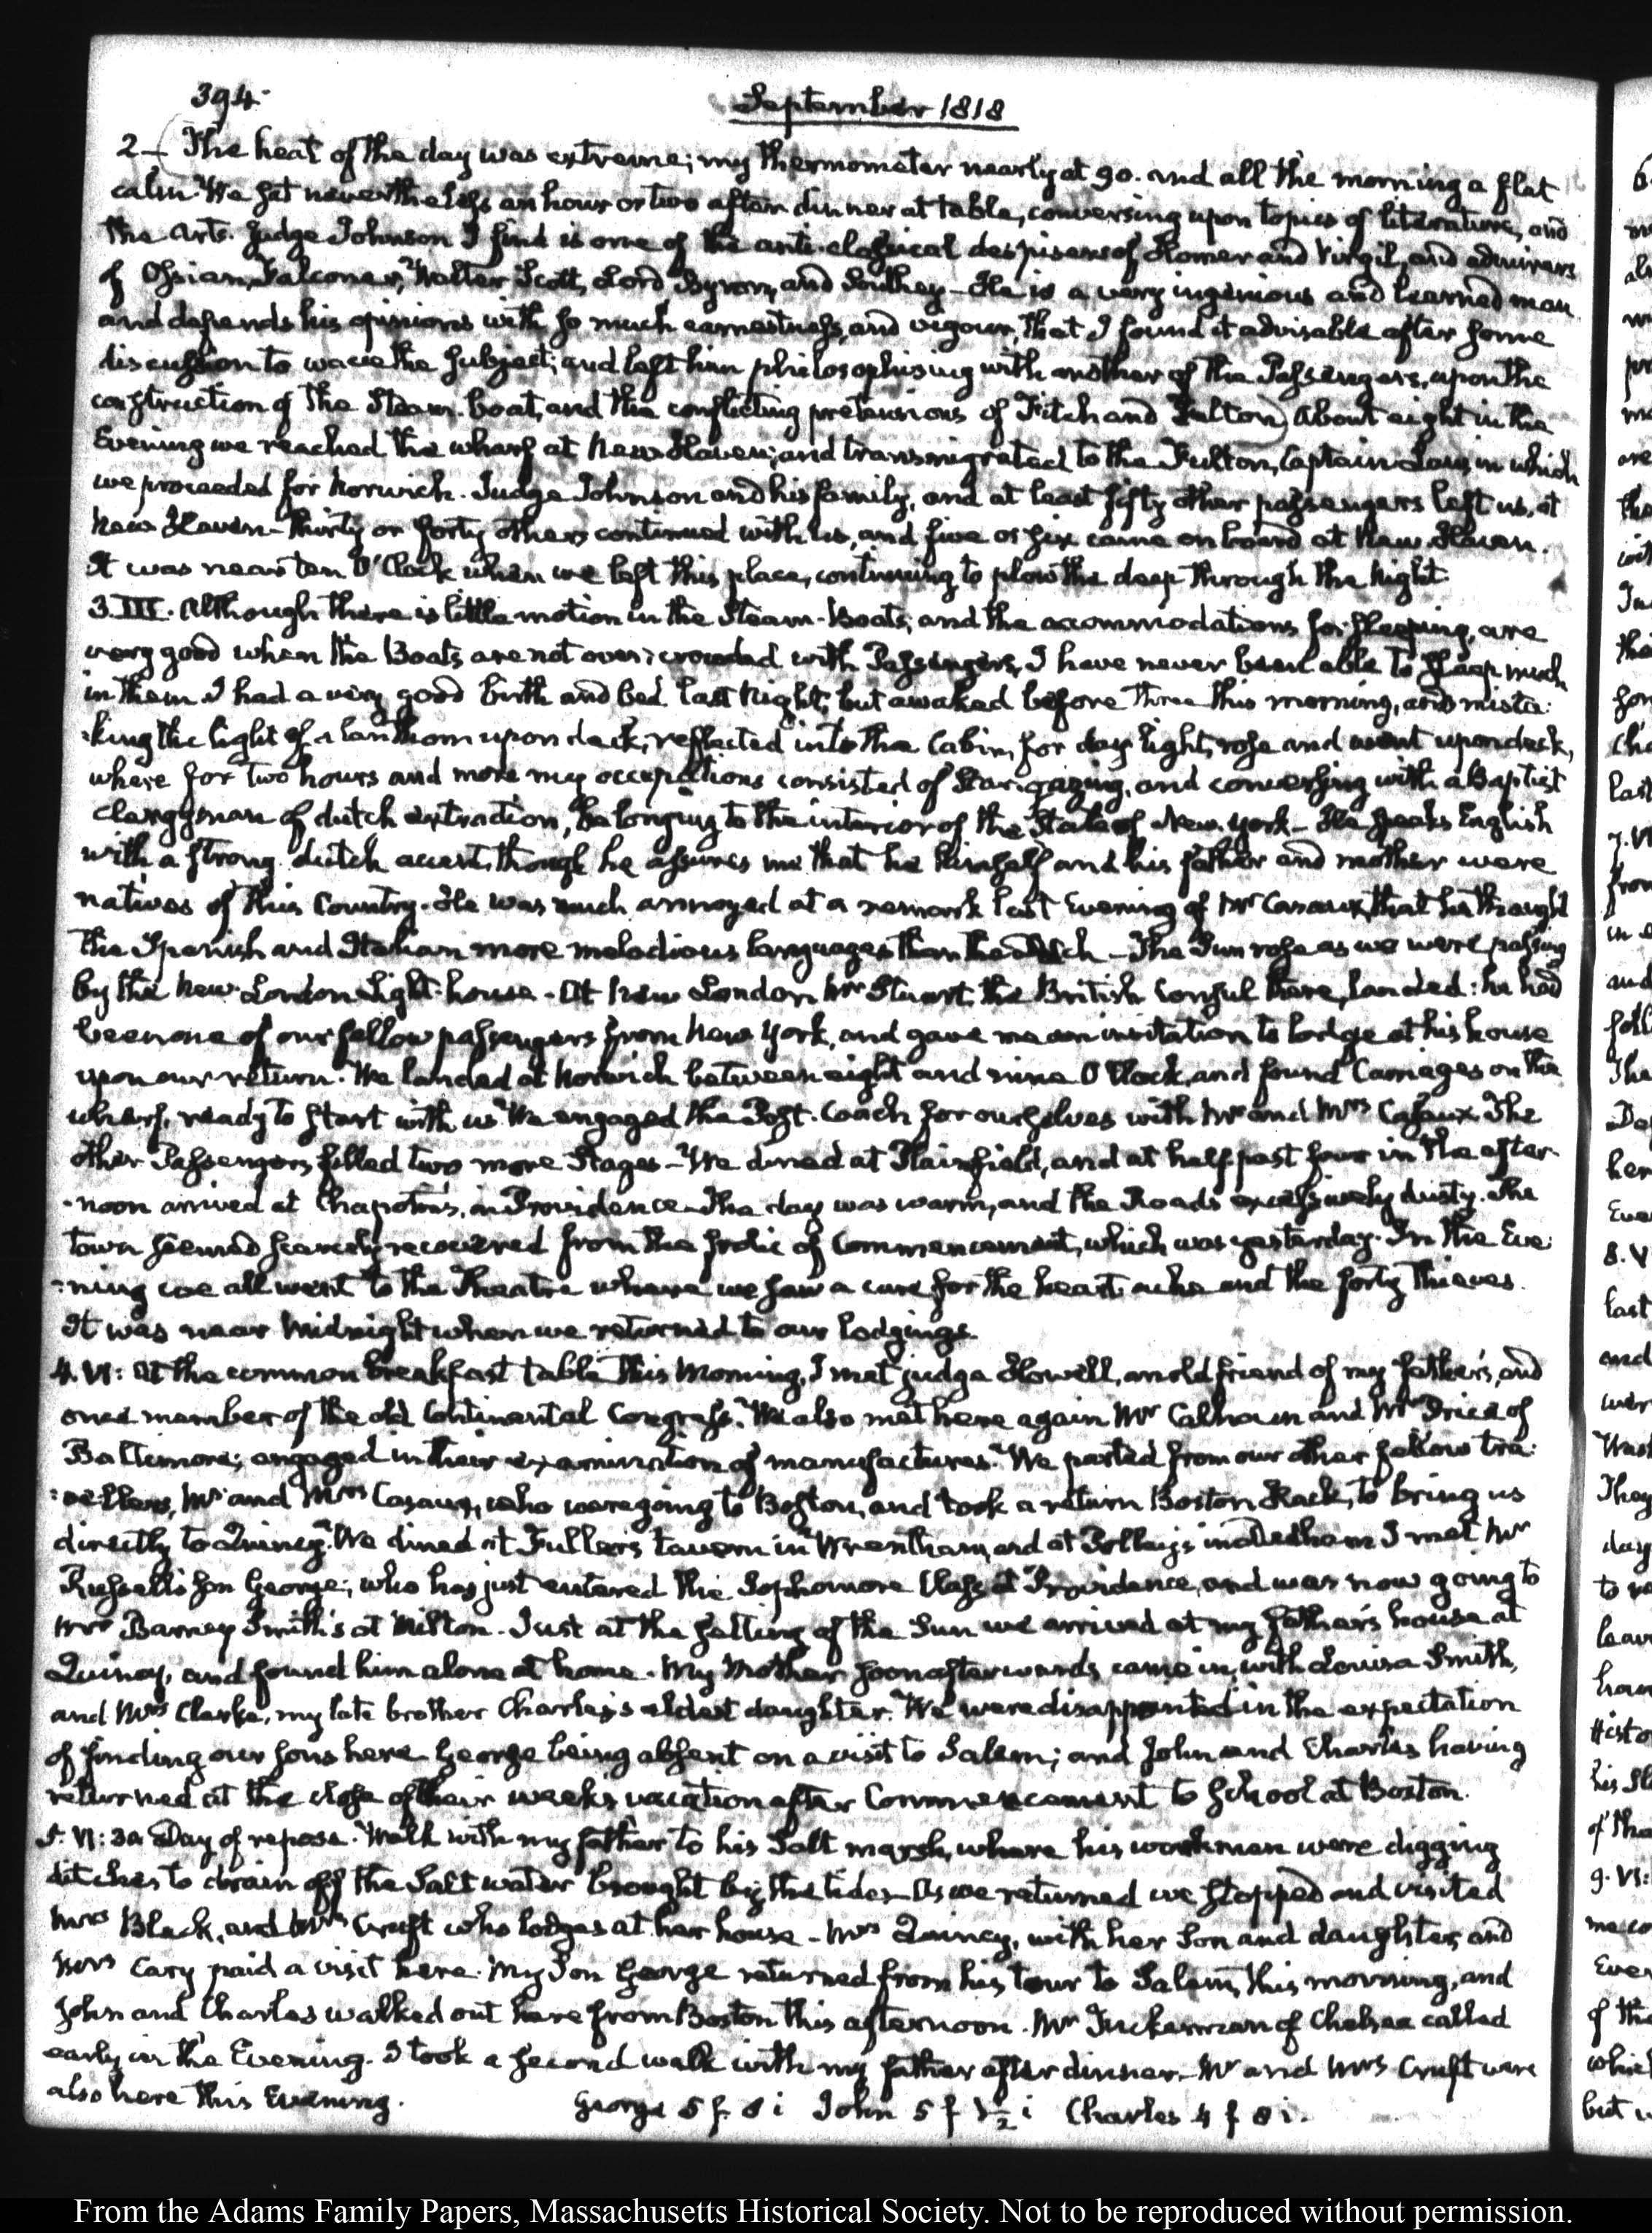 394.
September 1818
2— The heat of the day was extreme; my thermometer nearly at 90. and all the morning a flat
calm. We sat nevertheless an hour or two after dinner at table, conversing upon topics of literature, and
the arts. Judge Johnson I find is one of the anti-classical despisers of Homer and Virgil, and admirers
of Ossian, Falconer, Walter Scott, Lord Byron, and Southey — He is a very ingenious and learned man
and defends his opinions with so much earnestness, and vigour, that I found it advisable after some
discussion to wave the subject; and left him philosophising with another of the Passengers, upon the
construction of the Steam-boat, and the conflicting pretensions of Fitch and Fulton) About eight in the
Evening we reached the wharf at New Haven; and transmigrated to the Fulton, Captain Law, in which
we proceeded for Norwich. Judge Johnson and his family, and at least fifty other passengers left us, at
New Haven — thirty or forty others continued with us, and five or six came on board at New Haven.
It was near ten O'Clock when we left this place, continuing to plow the deep through the Night.
3. III. Although there is little motion in the Steam-Boats, and the accommodations for sleeping, are
very good when the Boats are not over-crowded with Passengers, I have never been able to sleep much
in them. I had a very good birth and bed last Night; but awaked before three this morning, and mista-
-king the light of a lanthorn upon deck, reflected into the Cabin, for day light, rose and went upon deck,
where for two hours and more my occupations consisted of Star-gazing, and conversing with a Baptist
Clergyman of dutch extraction, belonging to the interior of the State of New York — He speaks English
with a strong dutch accent, though he assures me that he himself and his father and mother were
natives of this Country. He was much annoyed at a remark last Evening of Mr Cazaux, that he thought
the Spanish and Italian more melodious languages than the Dutch — The Sun rose as we were passing
by the New-London Light-house. At New London Mr Stuart the British Consul there, landed: he had
been one of our fellow passengers from New York, and gave me an invitation to lodge at his house
upon our return. We landed at Norwich between eight and nine O'Clock, and found Carriages on the
wharf, ready to start with us. We engaged the Post-Coach for ourselves with Mr and Mrs Cazaux. The
other Passengers filled two more Stages — We dined at Plainfield, and at half past four in the after-
-noon arrived at Chapotin's, in Providence — The day was warm, and the Roads excessively dusty. The
town seemed scarcely recovered from the frolic of Commencement, which was yesterday. In the Eve-
-ning we all went to the Theatre where we saw a cure for the heart ache and the forty thieves.
It was near Midnight when we returned to our lodgings.
4. VI: At the common breakfast table this Morning, I met judge Howell, an old friend of my father's, and
once member of the old Continental Congress. We also met here again Mr Calhoun and Mr Price of
Baltimore; engaged in their examination of manufactures. We parted from our other fellow tra-
-vellers, Mr and Mrs Cazaux, who were going to Boston, and took a return Boston Hack, to bring us
directly to Quincy. We dined at Fuller's tavern in Wrentham, and at Polley's in Dedham I met Mr
Russell's son George; who has just entered the Sophomore Class at Providence, and was now going to
Mr Barney Smith's at Milton. Just at the setting of the Sun we arrived at my father's house at
Quincy, and found him alone at home. My Mother soon afterwards came in, with Louisa Smith,
and Mrs Clarke, my late brother Charles's eldest daughter. We were disappointed in the expectation
of finding our sons here George being absent on a visit to Salem; and John and Charles having
returned at the close of their week's vacation after Commencement to School at Boston.
5. VI: 30 Day of repose. Walk with my father to his Salt marsh, where his workmen were digging
ditches to drain off the Salt water brought by the tides — As we returned we stopped and visited
Mrs Black, and Mrs Cruft who lodges at her house — Mrs Quincy, with her Son and daughter, and
Mrs Cary paid a visit here. My Son George returned from his tour to Salem, this morning, and
John and Charles walked out here from Boston this afternoon. Mr Tuckerman of Chelsea called
early in the Evening. I took a second walk with my father after dinner — Mr and Mrs Cruft were
also here this Evening. George 5 f. 8 i John 5 f 1½ i Charles 4 f 8 i.
From the Adams Family Papers, Massachusetts Historical Society. Not to be reproduced without permission.